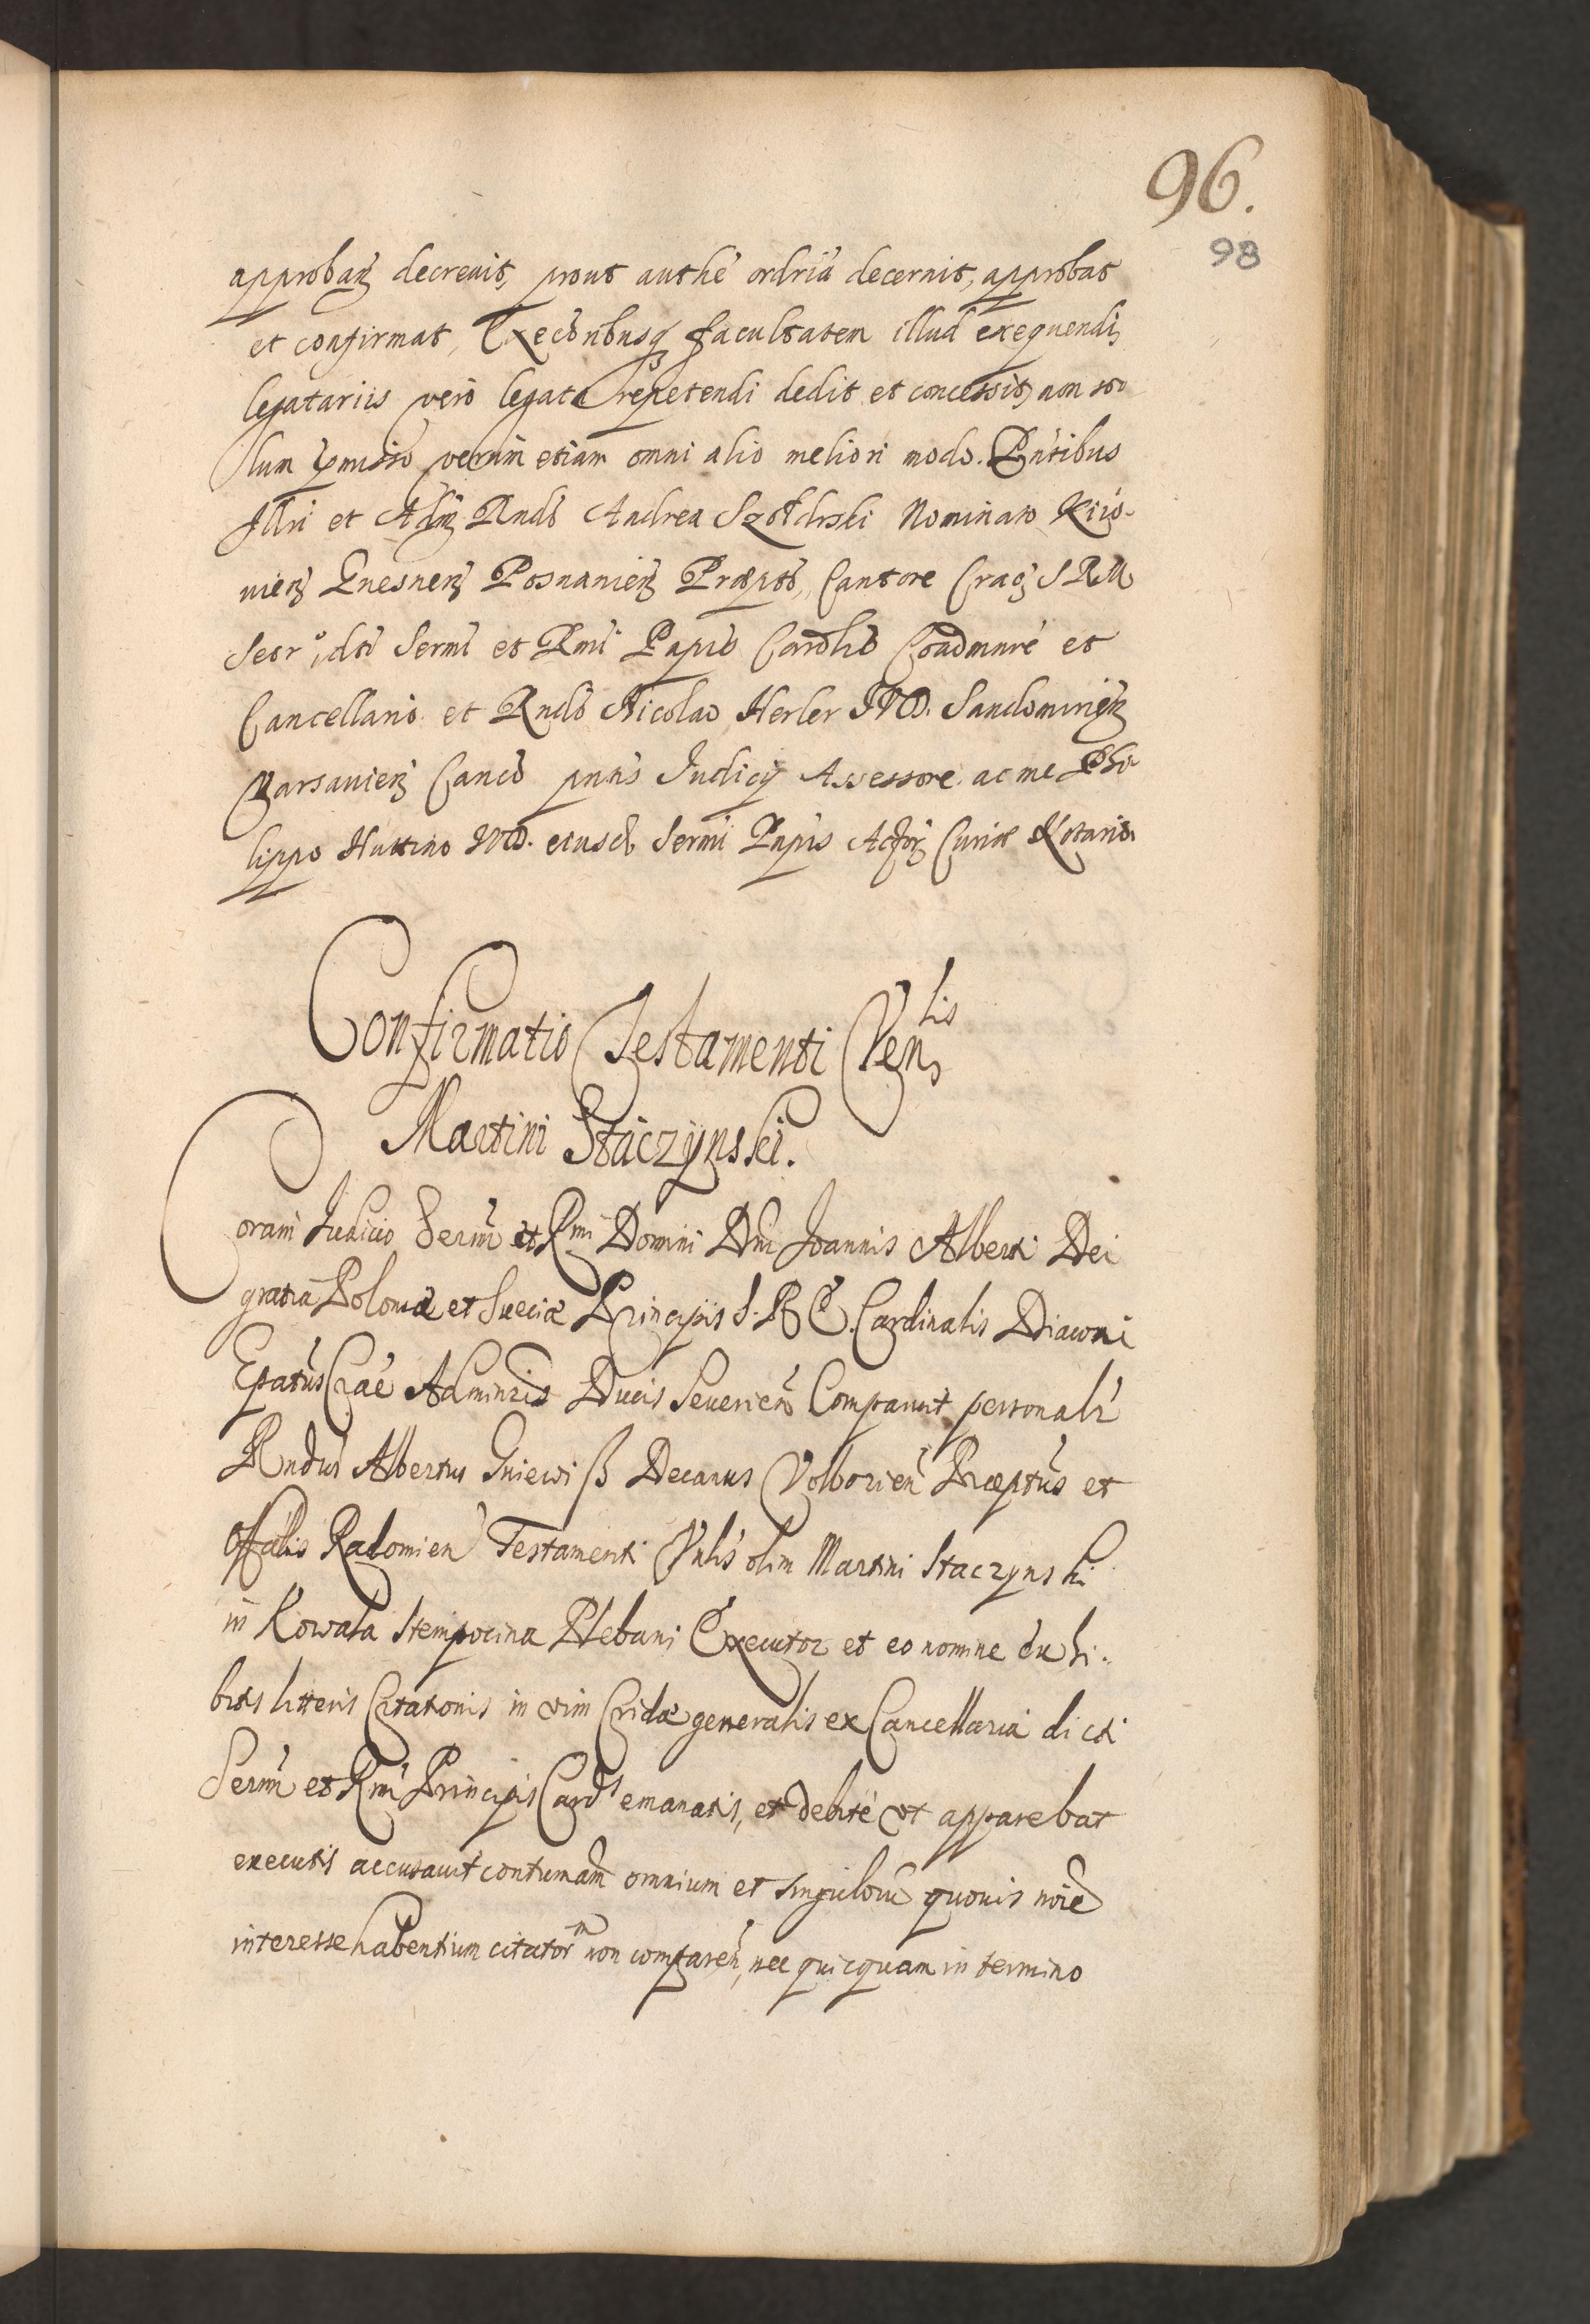 96.
98
approbań decreuit, prout authē ordriā decernit, approbat
et confirmat, Execōribusq facultatem illud exequendi,
legatariis verō legata repetendi dedit et concessit, non so
lum pmisso verum etiam omni alio meliori modo. Pntibus
Illri et Adm Rndo Andrea Szołdrski Nominato Kiio-
uień Gnesneń Posnanień Præpto, Cantore Crac S R M
Secr° dti Sermi et Rmi Papis Cardlis Coadmnre et
Cancellario et Rndo Nicolao Herler IVD. Sandomirień
Varsauień Canco pntis Judicij Assessore ac me Phi
lippo Huttino IVD. eiusd Sermi Pnpis Actor Curiæ Notario.
Confirmatio Testamenti Ven lis
Martini Stączÿnski.
Coram Judicio Sermi et Rmi Domini Dni Joannis Alberti Dei
gratia Poloniæ et Sueciæ Principis S. R E. Cardinalis Diaconi
Epatus Crac Adminris Ducis Seuerień Comparuit personalr
Rndus Albertus Gniewiß Decanus Volborień Præptus et
offalis Radomień Testamenti Vnlis olim Martini Staczynski
in Kowala Stempocina Plebani Executor et eo nomine exhi.
bitis litteris Citationis in vim Cridæ generalis ex Cancellaria dicti
Sermi et Rmi Principis Cardlis emanatis, et debitè vt apparebat
executis accusauit contumām omnium et singulorū quouis noiē
interesse habentium citator m non compareń, nec quicquam in termino